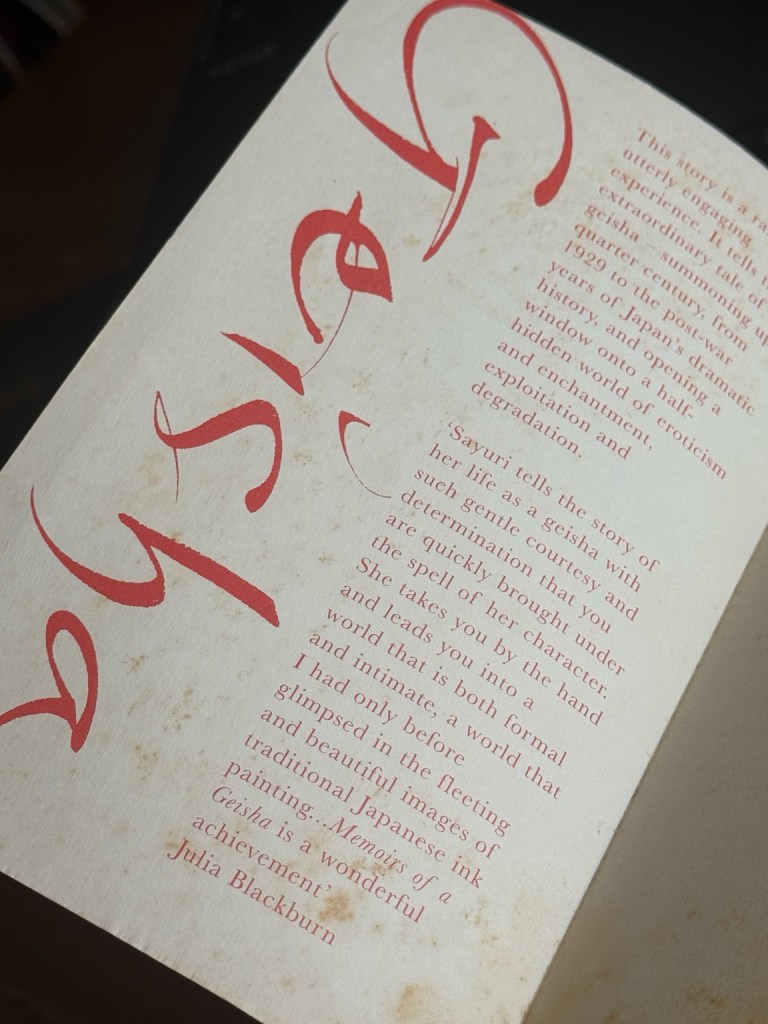 Geisha
This story is a
utterly engaging
experience. It tells
extraordinary tale of
geisha – summoning up
quarter century, from
1929 to the post-war
years of Japan's dramatic
history, and opening a
window onto a half-
hidden world of eroticism
and enchantment,
exploitation and
degradation.
'Sayuri tells the story of
her life as a geisha with
such gentle courtesy and
determination that you
are quickly brought under
the spell of her character.
She takes you by the hand
and leads you into a
world that is both formal
and intimate, a world that
I had only before
glimpsed in the fleeting
and beautiful images of
traditional Japanese ink
painting...Memoirs of a
Geisha is a wonderful
achievement'
Julia Blackburn